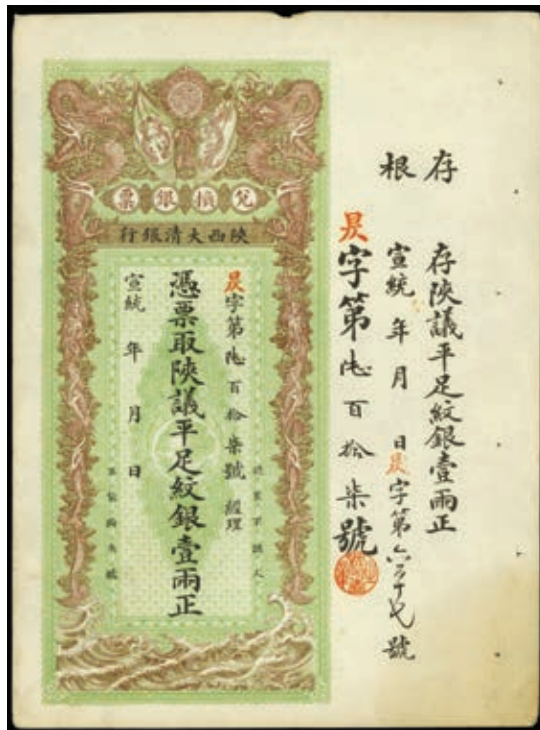 存根
存陝議平足紋銀壹兩正
宣統 年 月 日昃字第六百十七號
昃字第陸百拾柒號
兌換銀票
陝西大清銀行
認票不認人
昃字第陸百拾柒號 經理
憑票取陝議平足紋銀壹兩正
宣統 年 月 日